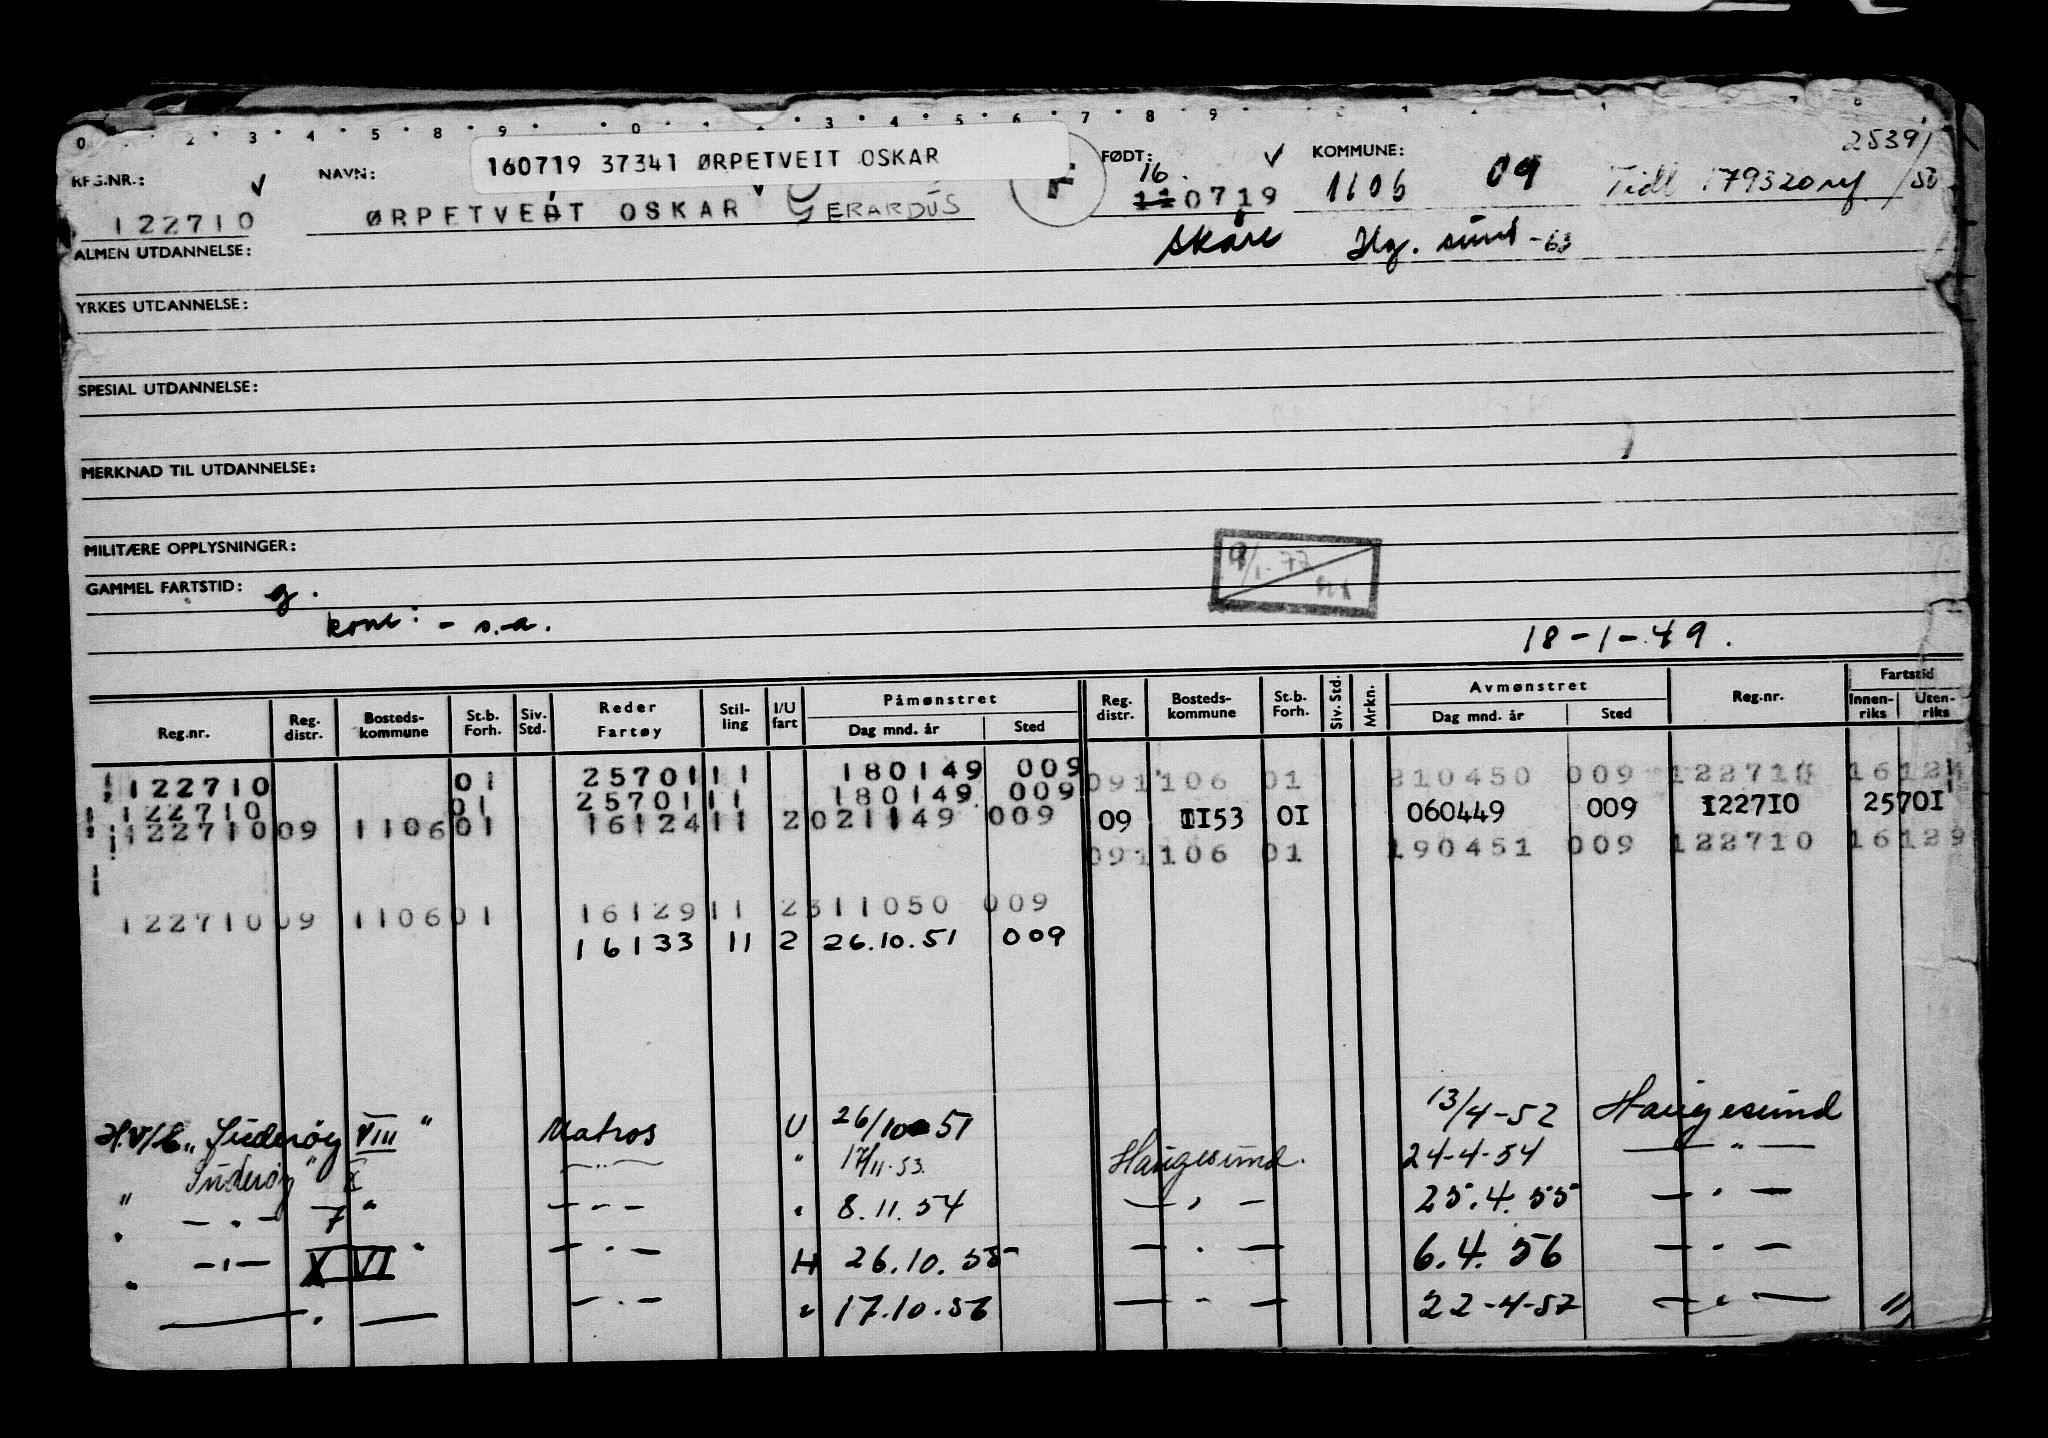 0 2 3 4 5 8 9 0 1 2 3 4 5 6 7 8 9
2539/50
160719 37341 ØRPETVEIT OSKAR
REG.NR.: NAVN: F FØDT: KOMMUNE:
16.
122710 ØRPETVEIT OSKAR GERARDUS 110719 1106 09 Tidl 179320
Skåre Hg. sund -63
ALMEN UTDANNELSE:
YRKES UTDANNELSE:
SPESIAL UTDANNELSE:
MERKNAD TIL UTDANNELSE:
MILITÆRE OPPLYSNINGER:
GAMMEL FARTSTID: g.
kont: - s.a.
18-1-49.
Reg.nr. Reg. distr. Bosteds-kommune St.b. Forh. Siv. Std. Reder Fartøy Stil-ling I/U fart Påmønstret Dag mnd. år Sted Reg. distr. Bosteds-kommune St.b. Forh. Siv. Std. Mrkn. Avmønstret Dag mnd. år Sted Reg.nr. Fartstid Innen-riks Uten-riks
122710 01 25701 11 180149 009 09 1106 01 210450 009 122710
122710 01 25701 11 180149 009 09 1153 01 060449 009 122710 25701
122710 09 1106 01 16124 11 2 021149 009 09 1106 01 190451 009 122710 16129
122710 09 1106 01 16129 11 2 311050 009
16133 11 2 26.10.51 009
H.V/K „Suderøy VIII" Matros U 26/10 51 13/4-52 Haugesund
" Suderøy" X — " — " 17/11-53. Haugesund. 24-4-54 — " —
" — " — 7 " — " — " 8.11.54 — " — 25.4.55 — " —
" — " — X VI " — " — H 26.10.55 — " — 6.4.56 — " —
— " — — " — " 17.10.56 — " — 22-4-57 — " —